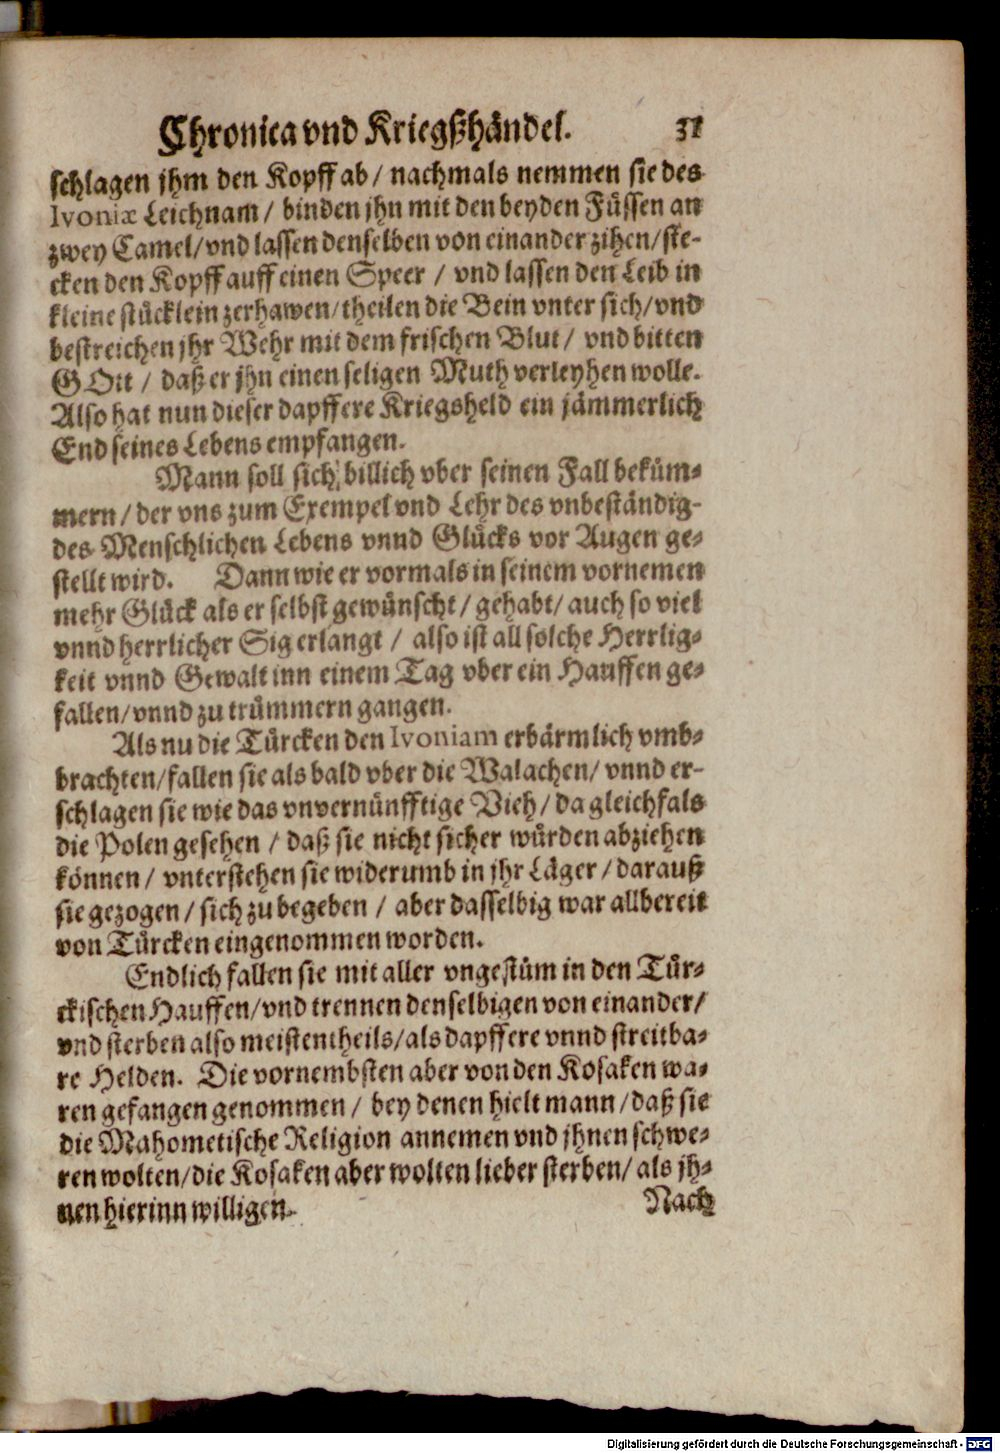 Chronica vnd Kriegßhändel. 31
schlagen jhm den Kopff ab / nachmals nemmen sie des
Ivoniæ Leichnam / binden jhn mit den beyden Füssen an
zwey Camel / vnd lassen denselben von einander zihen / ste-
cken den Kopff auff einen Speer / vnd lassen den Leib in
kleine stücklein zerhawen / theilen die Bein vnter sich / vnd
bestreichen jhr Wehr mit dem frischen Blut / vnd bitten
GOtt / daß er jhn einen seligen Muth verleyhen wolle.
Also hat nun dieser dapffere Kriegsheld ein jämmerlich
End seines Lebens empfangen.
Mann soll sich billich vber seinen Fall beküm-
mern / der vns zum Exempel vnd Lehr des vnbeständig-
des Menschlichen Lebens vnnd Glücks vor Augen ge-
stellt wird. Dann wie er vormals in seinem vornemen
mehr Glück als er selbst gewünscht / gehabt / auch so viel
vnnd herrlicher Sig erlangt / also ist all solche Herrlig-
keit vnnd Gewalt inn einem Tag vber ein Hauffen ge-
fallen / vnnd zu trümmern gangen.
Als nu die Türcken den Ivoniam erbärmlich vmb-
brachten / fallen sie als bald vber die Walachen / vnnd er-
schlagen sie wie das vnvernünfftige Vieh / da gleichfals
die Polen gesehen / daß sie nicht sicher würden abziehen
können / vnterstehen sie widerumb in jhr Läger / darauß
sie gezogen / sich zu begeben / aber dasselbig war allbereit
von Türcken eingenommen worden.
Endlich fallen sie mit aller vngestüm in den Tür-
ckischen Hauffen / vnd trennen denselbigen von einander /
vnd sterben also meistentheils / als dapffere vnnd streitba-
re Helden. Die vornembsten aber von den Kosaken wa-
ren gefangen genommen / bey denen hielt mann / daß sie
die Mahometische Religion annemen vnd jhnen schwe-
ren wolten / die Kosaken aber wolten lieber sterben / als jh-
nen hierinn willigen.
Nach
Digitalisierung gefördert durch die Deutsche Forschungsgemeinschaft - DFG